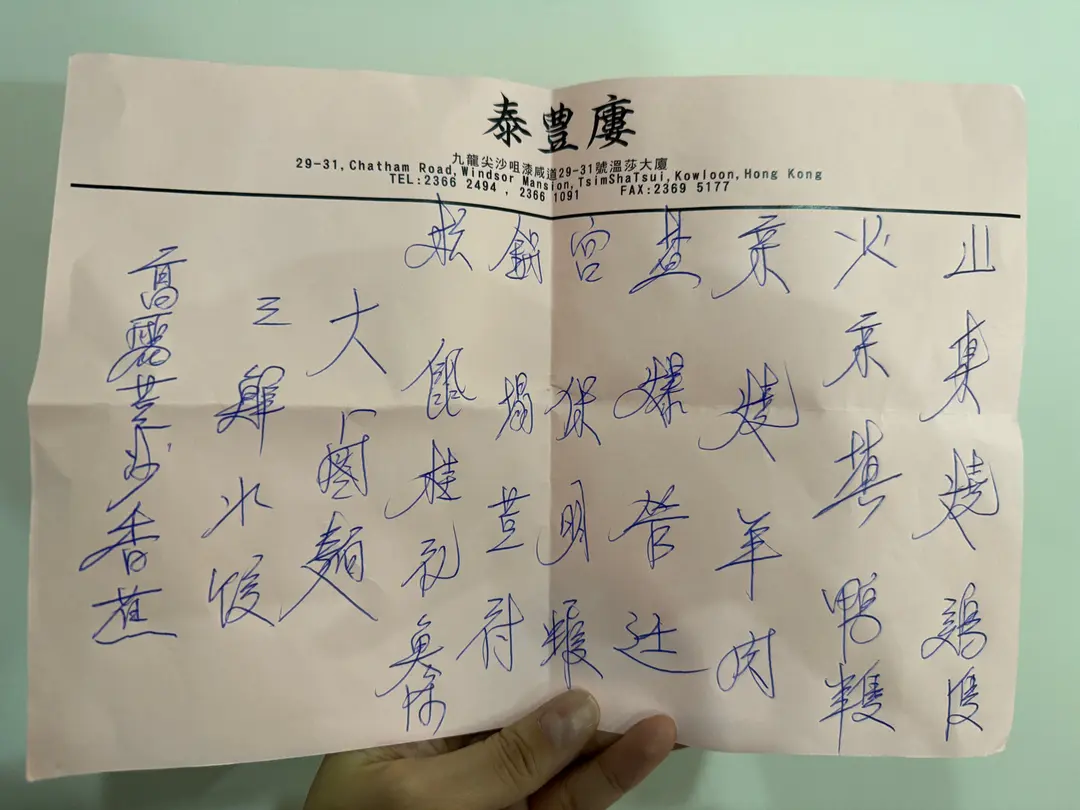 泰豐廔
九龍尖沙咀漆咸道29-31號溫莎大廈
29-31,Chatham Road,Windsor Mansion,TsimShaTsui,Kowloon,Hong Kong
TEL:2366 2494 , 2366 1091 FAX:2369 5177
山東燒鷄隻
京填鴨半隻
京燒羊肉
爆管廷
宮保明蝦
鍋塌荳付
松鼠桂花魚
大麵
三鮮水饺
高麗荳沙香蕉